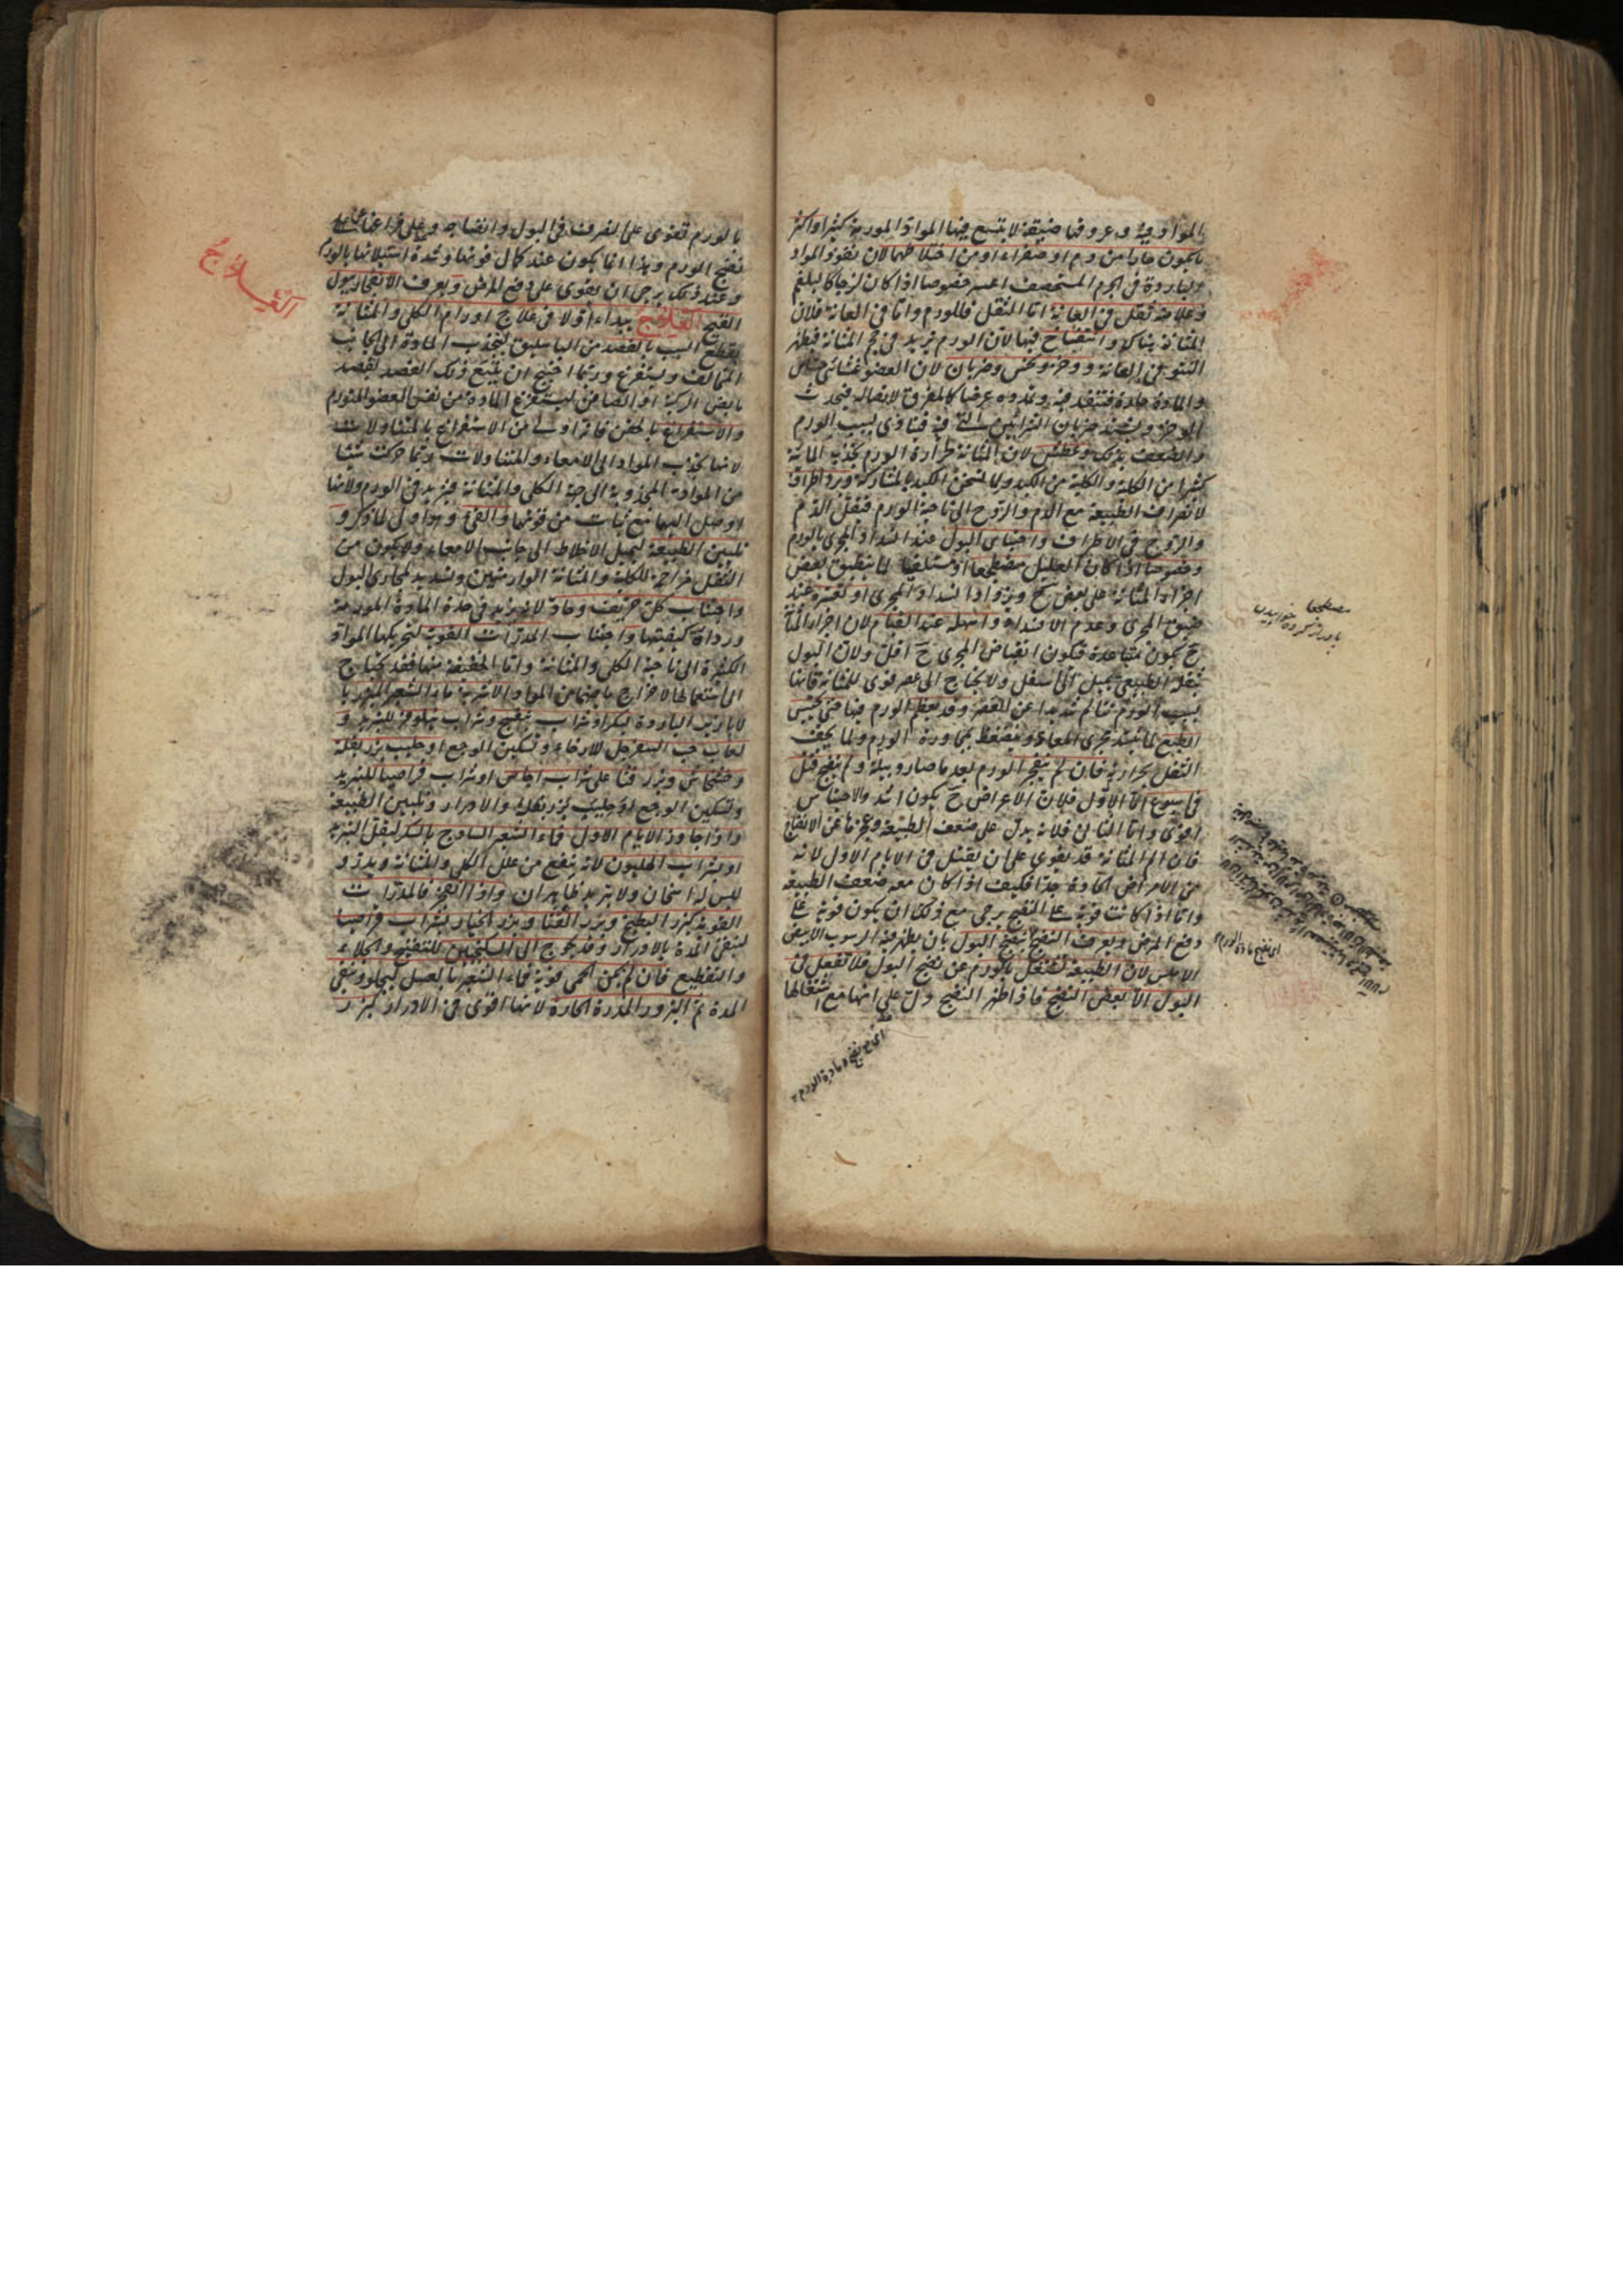 المواد وعروقها ضيقة لا يتسع فيها المواد المورمة كثيرا واكثر
ما يكون حارا من دم او صفراء او من اختلاطهما لان نفوذ المواد
الباردة في الجرم المستحصف اعسر خصوصا اذا كان لزجا كالبلغم
وعلامته ثقل في العانة اما الثقل فللورم واما في العانة فلان
المثانة هناك وانتفاخ فيها لان الورم يزيد في حجم المثانة فيظهر
النتو في العانة ووخز ونخس وضربان لان العضو غشائي حساس
والمادة حادة فتنفذ فيه وتمدده عرضا كالمفرق لاتصاله فيحدث
الوخز ويشتد ضربان الشرائين التي فيه فيتأذى بسبب الورم
والضعف بذلك وعطش لان المثانة لحرارة الورم تجذب المائية
كثيرا من الكلية والكلية من الكبد ولما تسخن الكبد بالمشاركة وبرد اطراف
لانصراف الطبيعة مع الدم والروح الى ناحية الورم فتقل الدم
والروح في الاطراف واحتباس البول عند انسداد المجرى بالورم
وخصوصا اذا كان العليل مضطجعا او مستلقيا لما ينطبق بعض
اجزاء المثانة على بعض ح ويزداد انسداد المجرى او تعسره عند
ضيق المجرى وعدم الانسداد واسهله عند القيام لان اجزاء المثانة
ح تكون متباعدة فيكون انقباض المجرى ح اقل ولان البول
بثقله الطبيعي يميل الى اسفل ولا يحتاج الى عصر قوى للمثانة فانها
بسبب الورم تتألم شديدا عن العصر وقد يعظم الورم فيها حتى يحبس
الطبع لما ينسد مجرى المعاء وينضغط بمجاورة الورم ولما يجف
الثفل بحرارته فان لم ينفجر الورم بعد ما صار دبيلة ولم ينضج قتل
في اسبوع اما الاول فلان الاعراض ح يكون اشد والاحتباس
اقوى واما الثاني فلانه يدل على ضعف الطبيعة وعجزها عن الانضاج
فان الم المثانة قد يقوى على ان يقتل في الايام الاول لانه
من الامراض الحادة جدا فكيف اذا كان معه ضعف الطبيعة
واما اذا كانت قوية على النضج يرجى مع ذلك ان يكون قوية على
دفع المرض ويعرف النضج بنضج البول بان يظهر فيه الرسوب الابيض
الاملس لان الطبيعة تشتغل بالورم عن نضج البول فلا تفعل في
البول الا بعض النضج فاذا ظهر النضج دل على انها مع اشتغالها
مضطجعا
اى نضج مادة الورم
اى مع نضج مادة الورم
بالورم تقوى على التصرف في البول وانضاجه
نضج الورم وهذا انما يكون عند كمال قوتها وشدة استيلائها بالورم
وعند ذلك يرجى ان يقوى على دفع المرض ويعرف الانفجار ببول
القيح العلاج يبداء اولا في علاج اورام الكلى والمثانة
بقطع السبب بالفصد من الباسليق لتجذب المادة الى الجانب
المخالف ويستفرغ وربما احتيج ان يتبع ذلك الفصد بفصد
مابض الركبة او الصافن ليستفرغ المادة من نفس العضو المتورم
والاستفراغ بالحقن فانه اولى من الاستفراغ بالمتناولات
لانها تجذب المواد الى الامعاء والمتناولات ربما حركت شيئا
من المواد المجذوبة الى جهة الكلى والمثانة فيزيد في الورم ولانها
اوصل اليها مع ثبات من قوتها والقئ وهو اولى لما ذكر و
تليين الطبيعة ليميل الاخلاط الى جانب الامعاء ولا يكون من
الثفل مزاحمة للكلية والمثانة الوارمتين وتسديد لمجارى البول
واجتناب كل حريف وحاد لانه يزيد في حدة المادة المورمة
ورداءة كيفيتها واجتناب المدرات القوية لتحريكها المواد
الكثيرة الى ناحية الكلى والمثانة واما الخفيفة منها فقد يحتاج
الى استعمالها لاخراج ما يحتبس من المواد الاشربة ماء الشعير
لانه ارق الباردة بسكر او شراب بنفسج وشراب نيلوفر للتبريد و
لعاب حب السفرجل للارخاء وتسكين الوجع او حليب بزر بقلة
وخشخاش وبزر قثا على شراب اجاص او شراب قراصيا للتبريد
وتسكين الوجع او حليب بزر بقلة والادرار وتليين الطبيعة
واذا جاوز الايام الاول فماء الشعير الساذج بالسكر ليقل التبريد
او بشراب الهليون لانه ينفع من علل الكلى والمثانة ويدر و
ليس له اسخان ولا تبريد ظاهران واذا انفجر فالمدرات
القوية كبزر البطيخ وبزر القثا وبزر الخيار بشراب قراصيا
لينقى المدة بالادرار وقد يحوج الى السكنجبين للتفتيح والجلاء
والتقطيع فان لم يكن الحمى قوية فماء الشعير بالعسل ليجلو وينقى
المدة ثم البزور المدرة الحارة لانها اقوى في الادرار كبزر
العلاج